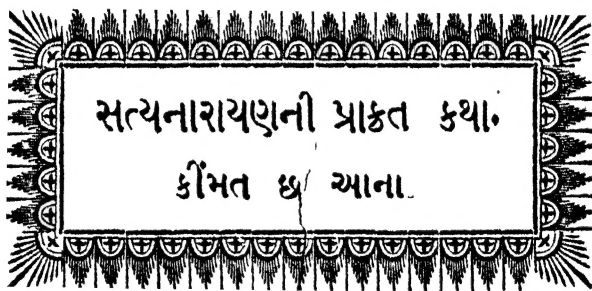 સત્યનારાયણની પ્રાકૃત કથા.
કીંમત છ આના.